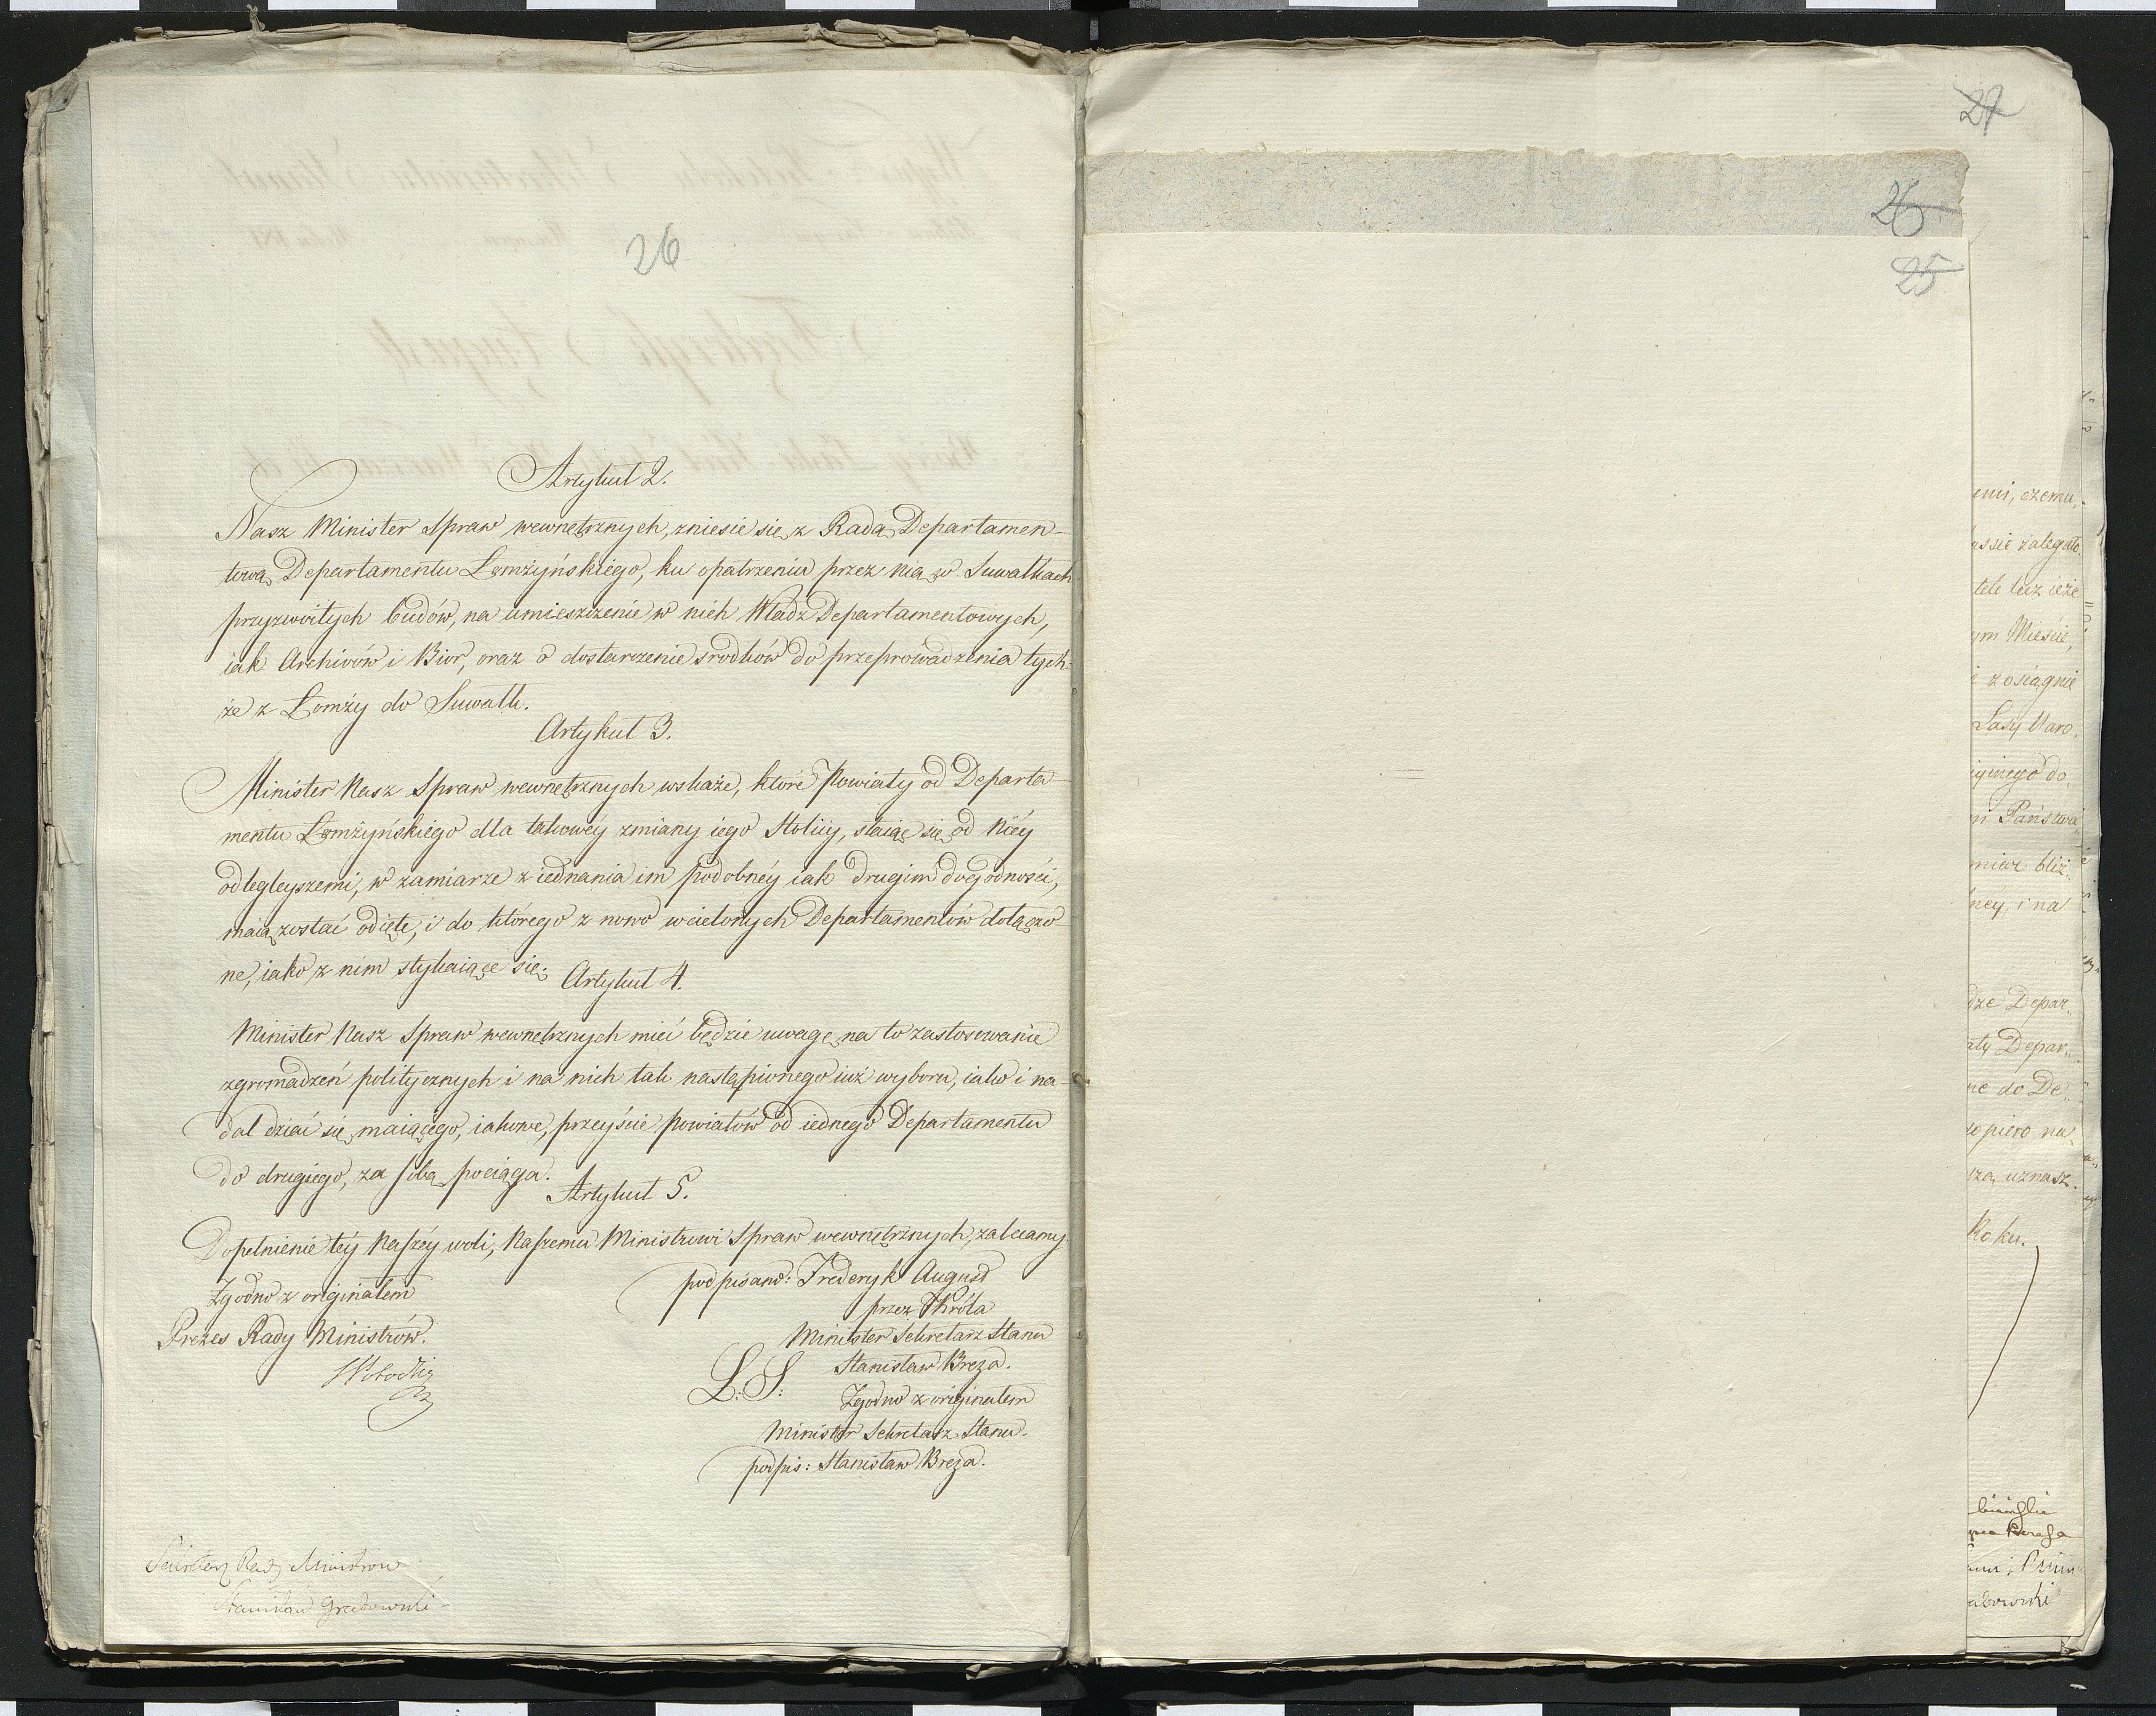 26
Artykuł 2.
Nasz Minister Spraw wewnętrznych, zniesie się z Radą Departamen-
tową Departamentu Łomżyńskiego, ku opatrzeniu przez nią w Suwałkach
przyzwoitych budów, na umieszczenie w nich Władz Departamentowych,
iak Archivów i Biór, oraz o dostarczenie srodków do przeprowadzenia tych-
że z Łomży do Suwałk.
Artykuł 3.
Minister Nasz Spraw wewnętrznych wskaże, które Powiaty od Departa-
mentu Łomżyńskiego dla takowéy zmiany iego Stolicy, staiąc się od Niéy
odległeyszemi, w zamiarze ziednania im podobnéy iak drugim dogodności,
maią zostać odięte, i do którego z nowo wcielonych Departamentów dołączo-
ne, iako z nim stykaiące się.
Artykuł 4.
Minister Nasz Spraw wewnętrznych mieć będzie uwagę na to zastosowanie
zgromadzeń politycznych i na nich tak nastąpionego iuż wyboru, iako i na-
dal dziać się maiącego, iakowe, przeyście Powiatów od iednego Departamentu
do drugiego, za sobą pociąga.
Artykuł 5.
Dopełnienie téy Naszéy woli, Naszemu Ministrowi Spraw wewnętrznych, zalecamy.
podpisano: Frederyk August
przez Króla
Minister Sekretarz Stanu
L: S: Stanisław Breza.
Zgodno z originałem
Minister Sekretarz Stanu.
podpis: Stanisław Breza.
Zgodno z originałem
Prezes Rady Ministrów.
Sekretarz Rady Ministrów
Stanisław Grabowski
27
26
25
czemu,
tele tuż ieże
ym Mieście,
z osiągnie
Lasy Naro
do
Państwa
bliż
néy, i na
dze Depar
aty Depar
ne do De
opiero na
uznasz.
Roku.